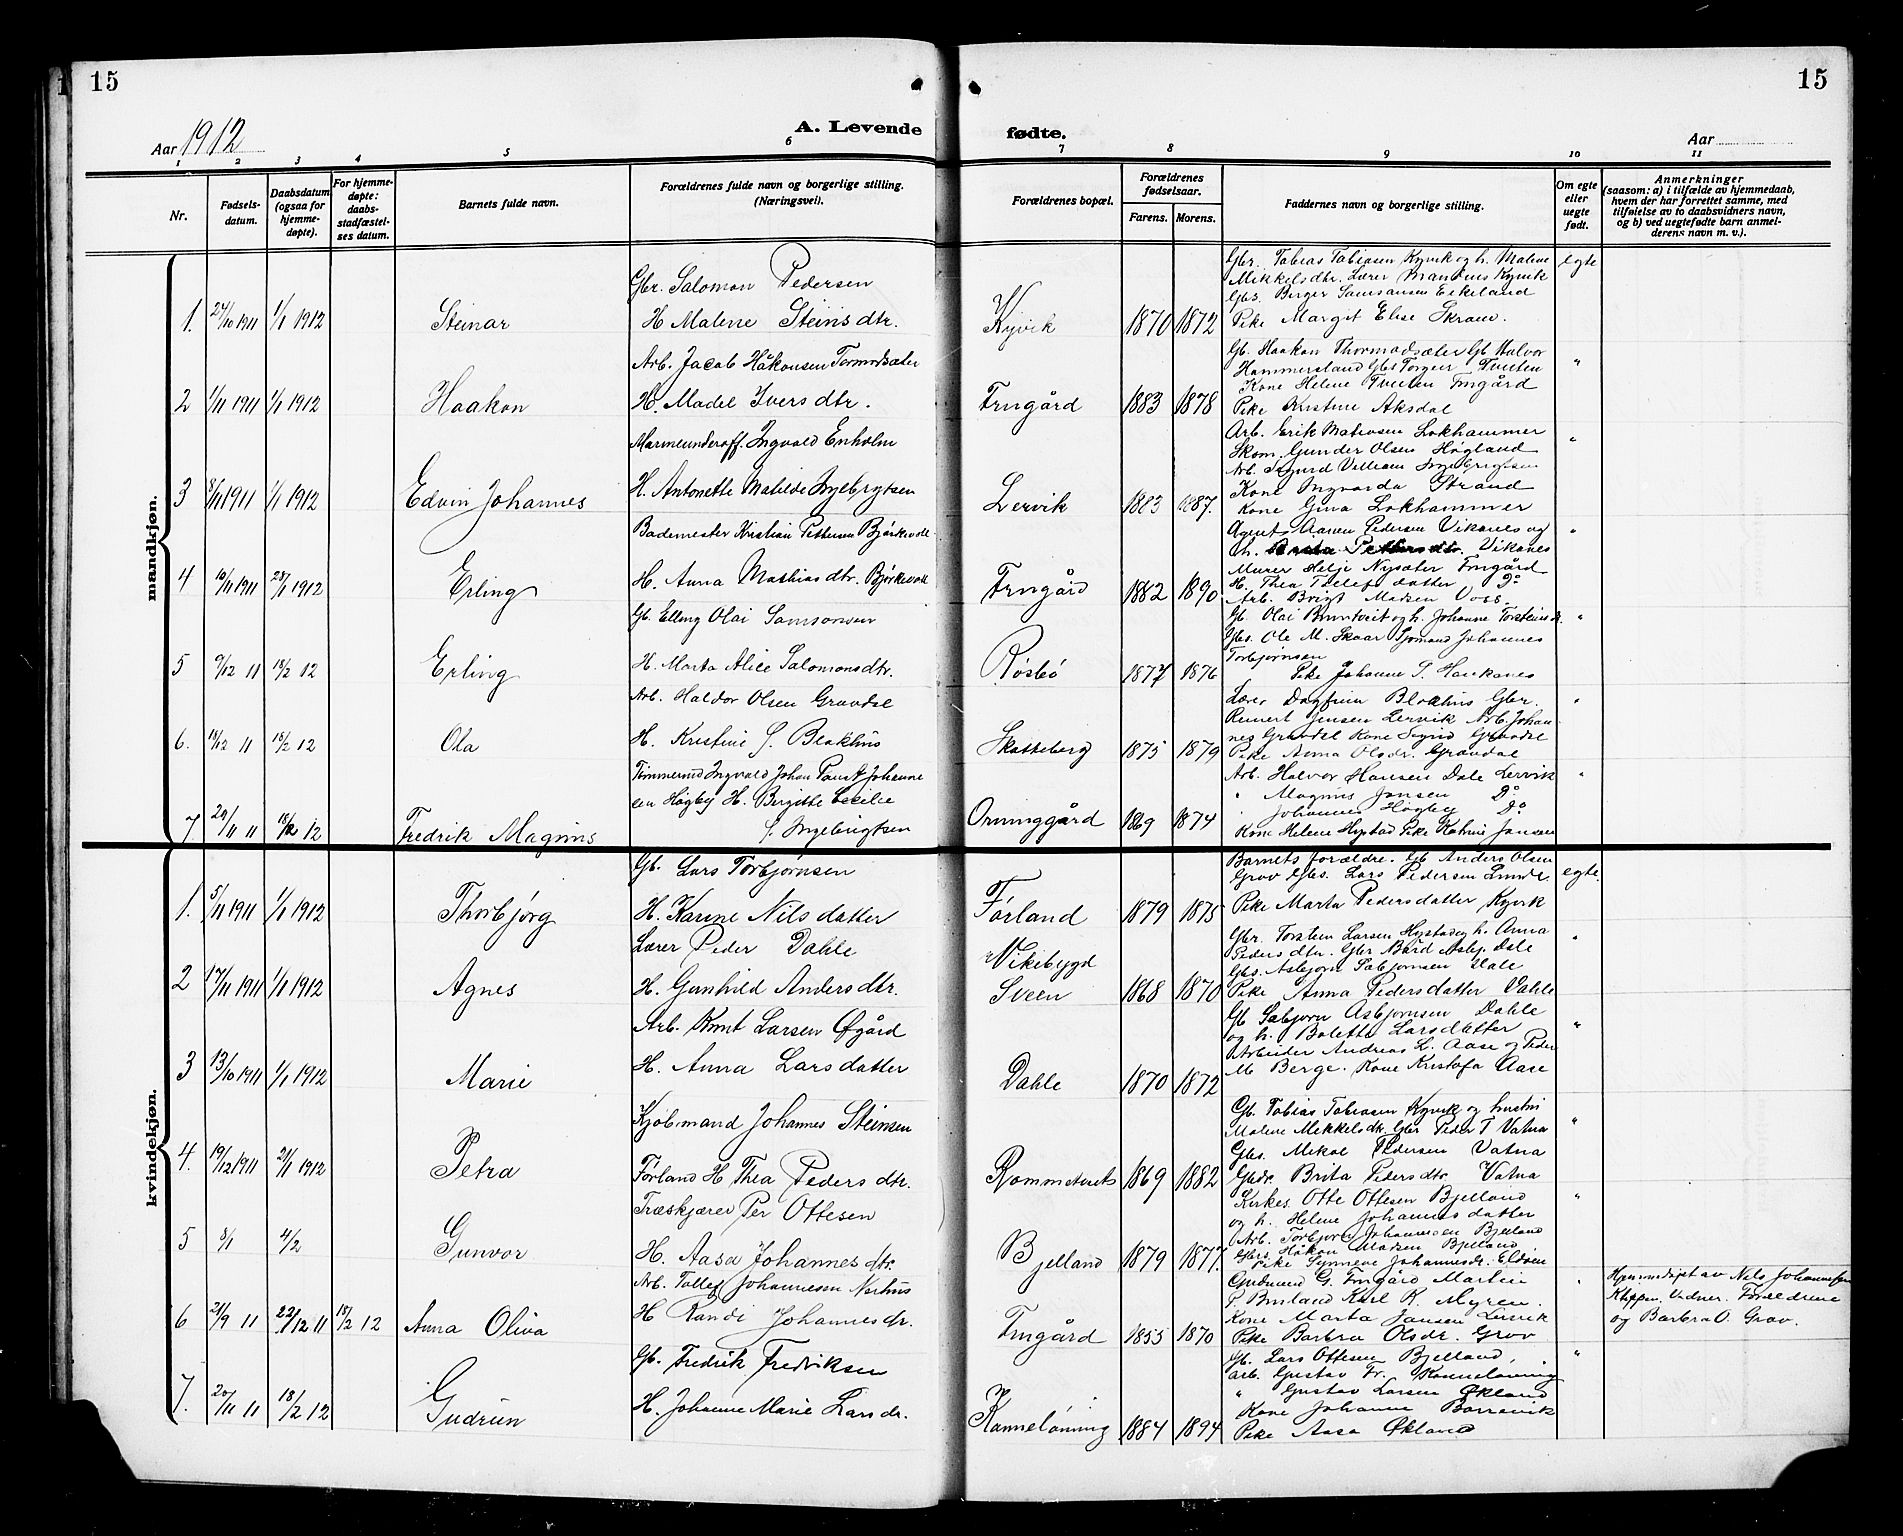 15
15
Aar 1912
A. Levende fødte.
Aar
1 2 3 4 5 6 7 8 9 10 11
Nr.
Fødselsdatum.
Daabsdatum (ogsaa for hjemmedøpte).
For hjemmedøpte: daabsstadfæstelses datum.
Barnets fulde navn.
Forældrenes fulde navn og borgerlige stilling. (Næringsvei).
Forældrenes bopæl.
Forældrenes fødselsaar.
Farens. Morens.
Faddernes navn og borgerlige stilling.
Om egte eller uegte født.
Anmerkninger
(saasom: a) i tilfælde av hjemmedaab, hvem der har forrettet samme, med tilføielse av to daabsvidners navn, og b) ved uegtefødte barn anmelderens navn m. v.).
mandkjøn.
Gbr. Salomon Pedersen
Gbr. Tobias Tobiasen Kyvik og h. Malene
egte
Mikkelsdtr. Lærer Brandeus Kyvik
Gbs. Berger Samsonsen Eikeland
1. 24/10 1911 1/1 1912 Steinar H Malene Steinsdtr. Kyvik 1870 1872 Pike Margit Elise Skram.
Arb. Jacob Håkonsen Tormodsæter
Gb. Haakon Thormodsæter Gb Halvor
Hammersland Gbs Torgeir Tveiten "
Kone Helene Tveiten Frugård
2 1/11 1911 1/1 1912 Haakon H. Madel Iversdtr. Frugård 1883 1878 Pike Kristine Aksdal
Marineunderoff. Ingvald Enholm
Arb. Erik Mathisen Lokhammer
Skom. Gunder Olsen Høgland "
Arb. Sigurd Villiam Ingebrigtsen
3 8/11 1911 1/1 1912 Edvin Johannes H. Antonette Matilde Ingebrigtsen Lervik 1883 1887. Kone Ingvarda Strand
Kone Gina Lokhammer
Bademester Kristian Pettersen Bjørkevoll
Agent Aanen Pedersen Vikanes og "
h. Pettersdtr. Vikanes
Murer Helje Nysæter Frugård
4 10/11 1911 28/1 1912 Erling H. Anna Mathiasdtr. Bjørkevoll Frugård 1882 1890 H. Thea Tdo
Arb. Brigt Madsen Voss
Gb. Elling Olai Samsonsen
Gb. Olai Bruntveit og h. Johanne Torsteinsdr. "
Gbs. Ole M. Skaar Sjømand Johannes
Torbjørnsen
5 9/12 11 18/2 12 Erling H. Marta Alice Salomonsdtr. Røsbø 1877 1876 Pike Johanne S. Haukanes
Arb. Haldor Olsen Gravdal
Lærer Dagfinn Blakhus Gbr. "
Reinert Jensen Lervik Arb. Johan-
nes Gravdal Kone Sigrid Gravdal
6. 18/12 11 18/2 12 Ola H. Kristine S. Blakhus Skatteberg 1875 1879 Pike Anna Olsdr. Gravdal
Tømmermd Ingvald Johan Johanne
Arb. Halvor Hansen Dale Lervik "
sen Høgby H. Bergitte Cecilie
" Magnus Jensen Do
" Johannes Høgby Do
7. 29/11 11 18/2 12 Fredrik Magnus S. Ingebrigtsen Onninggård 1869 1874 Kone Helene Hystad Pike Katrine Jansen
kvindekjøn.
Gb. Lars Torbjørnsen
Barnets forældre. Gb Anders Olsen
Grov Gbs. Lars Pedersen Lunde. egte.
1. 5/11 1911 1/1 1912 Thorbjørg H. Karine Nilsdatter Førland 1879 1875 Pike Marta Pedersdatter Kyvik
Lærer Peder Dahle Vikebygd
Gbr. Torsten Larsen Hystad og h. Anna "
Pedersdtr. Gbr Bård Asbj. Dale
Gbs. Asbjørn Sabjørnsen Dale
2 17/11 1911 1/1 1912 Agnes H. Gunhild Andersdtr. Sveen 1868 1870 Pike Anna Pedersdatter Dahle
Arb. Knut Larsen Øfgård
Gb Sabjørn Asbjørnsen Dahle
og h. Bolette Larsdatter "
Arbeider Andreas L. Aase og Peder
3 13/10 1911 1/1 1912 Marie H. Anna Larsdatter Dahle 1870 1872 M Berge. Kone Kristofa Aase
Kjøbmand Johannes Steinsen
Gb. Tobias Tobiasen Kyvik og hustru
Malene Mekkelsdtr. Gbr Peder T Vatna "
Gbs. Mekal Pedersen Vatna
4. 19/12 1911 21/1 1912 Petra Førland H Thea Pedersdtr. Rommetveit 1869 1882 Gbdr. Brita Pedersdtr. Vatna
Træskjærer Per Ottesen
Kirkes. Otte Ottesen Bjelland "
og h. Helene Johannesdatter
Arb. Torbjørn Johannessen Bjelland
5 8/1 4/2 Gunvor H. Aasa Johannesdtr. Bjelland 1879 1877. Gbrs. Håkon Madsen Bjelland
Pike Synneve Johannesdr. Eldøen
Arb. Tollef Johannesen Nerhus
Gudmund G. Frugård Martin "
P. Bruland Karl K. Myren.
Hjemmedøpt av Nils Johannesen
Klippen. Vidner. Forældrene
og Barbra O. Grov.
6 21/9 11 22/12 11 18/2 12 Anna Oliva H Randi Johannesdr. Frugård 1855 1870 Kone Marta Jansen Lervik
Pike Barbra Olsdr. Grov
Gb. Fredrik Fredriksen
Gb. Lars Ottesen Bjelland, "
arb. Gustav Fr. Kanneløning
" Gustav Larsen Økland
7. 20/11 11 18/2 12 Gudrun H. Johanne Marie Larsdr. Kanneløning 1884 1894 Kone Johanne Borrevik
Pike Aasa Økland